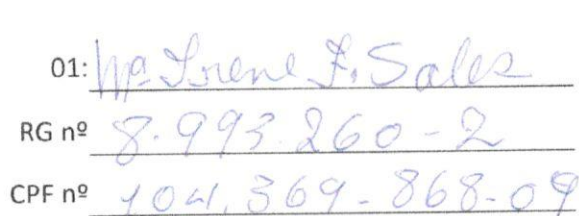 01: Mª Irene F. Sales
RG nº 8.993.260-2
CPF nº 104.369-868-09